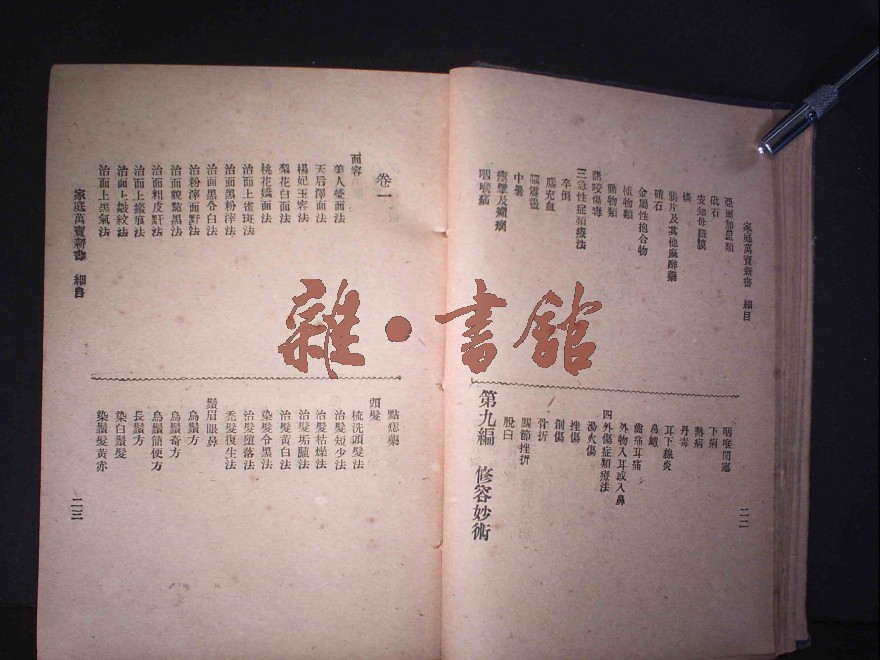 家庭萬寶新書 細目
亞爾加里類
砒石
安知母尼膜
燐
鴉片及其他麻醉藥
硝石
金屬性抱合物
植物類
動物類
諸咬傷毒
三急性症類療法
卒倒
腦充血
腦震盪
中暑
痙攣及癲癇
咽喉痛
咽喉閉塞
下痢
熱病
丹毒
耳下線炎
鼻衄
齒痛耳痛
外物入耳或入鼻
四外傷症類療法
湯火傷
挫傷
創傷
骨折
關節挫折
脫臼
第九編 修容妙術
二二
卷一
面容
美人瑩面法
天后澤面法
楊妃玉容法
梨花白面法
桃花嬌面法
治面上雀斑法
治面黑粉滓法
治面黑令白法
治粉滓面䵟法
治面貌黧黑法
治面粗皮䵟法
治面上瘢痕法
治面上皺紋法
治面上黑氣法
家庭萬寶新書 細目
點痣藥
頭髮
梳洗頭髮法
治髮短少法
治髮枯燥法
治髮垢膩法
治髮黃白法
染髮令黑法
治髮墮落法
禿髮復生法
鬚眉眼鼻
烏鬚方
烏鬚奇方
烏鬚簡便方
長鬚方
染白鬚髮
染鬚髮黃赤
二三
雜·書館